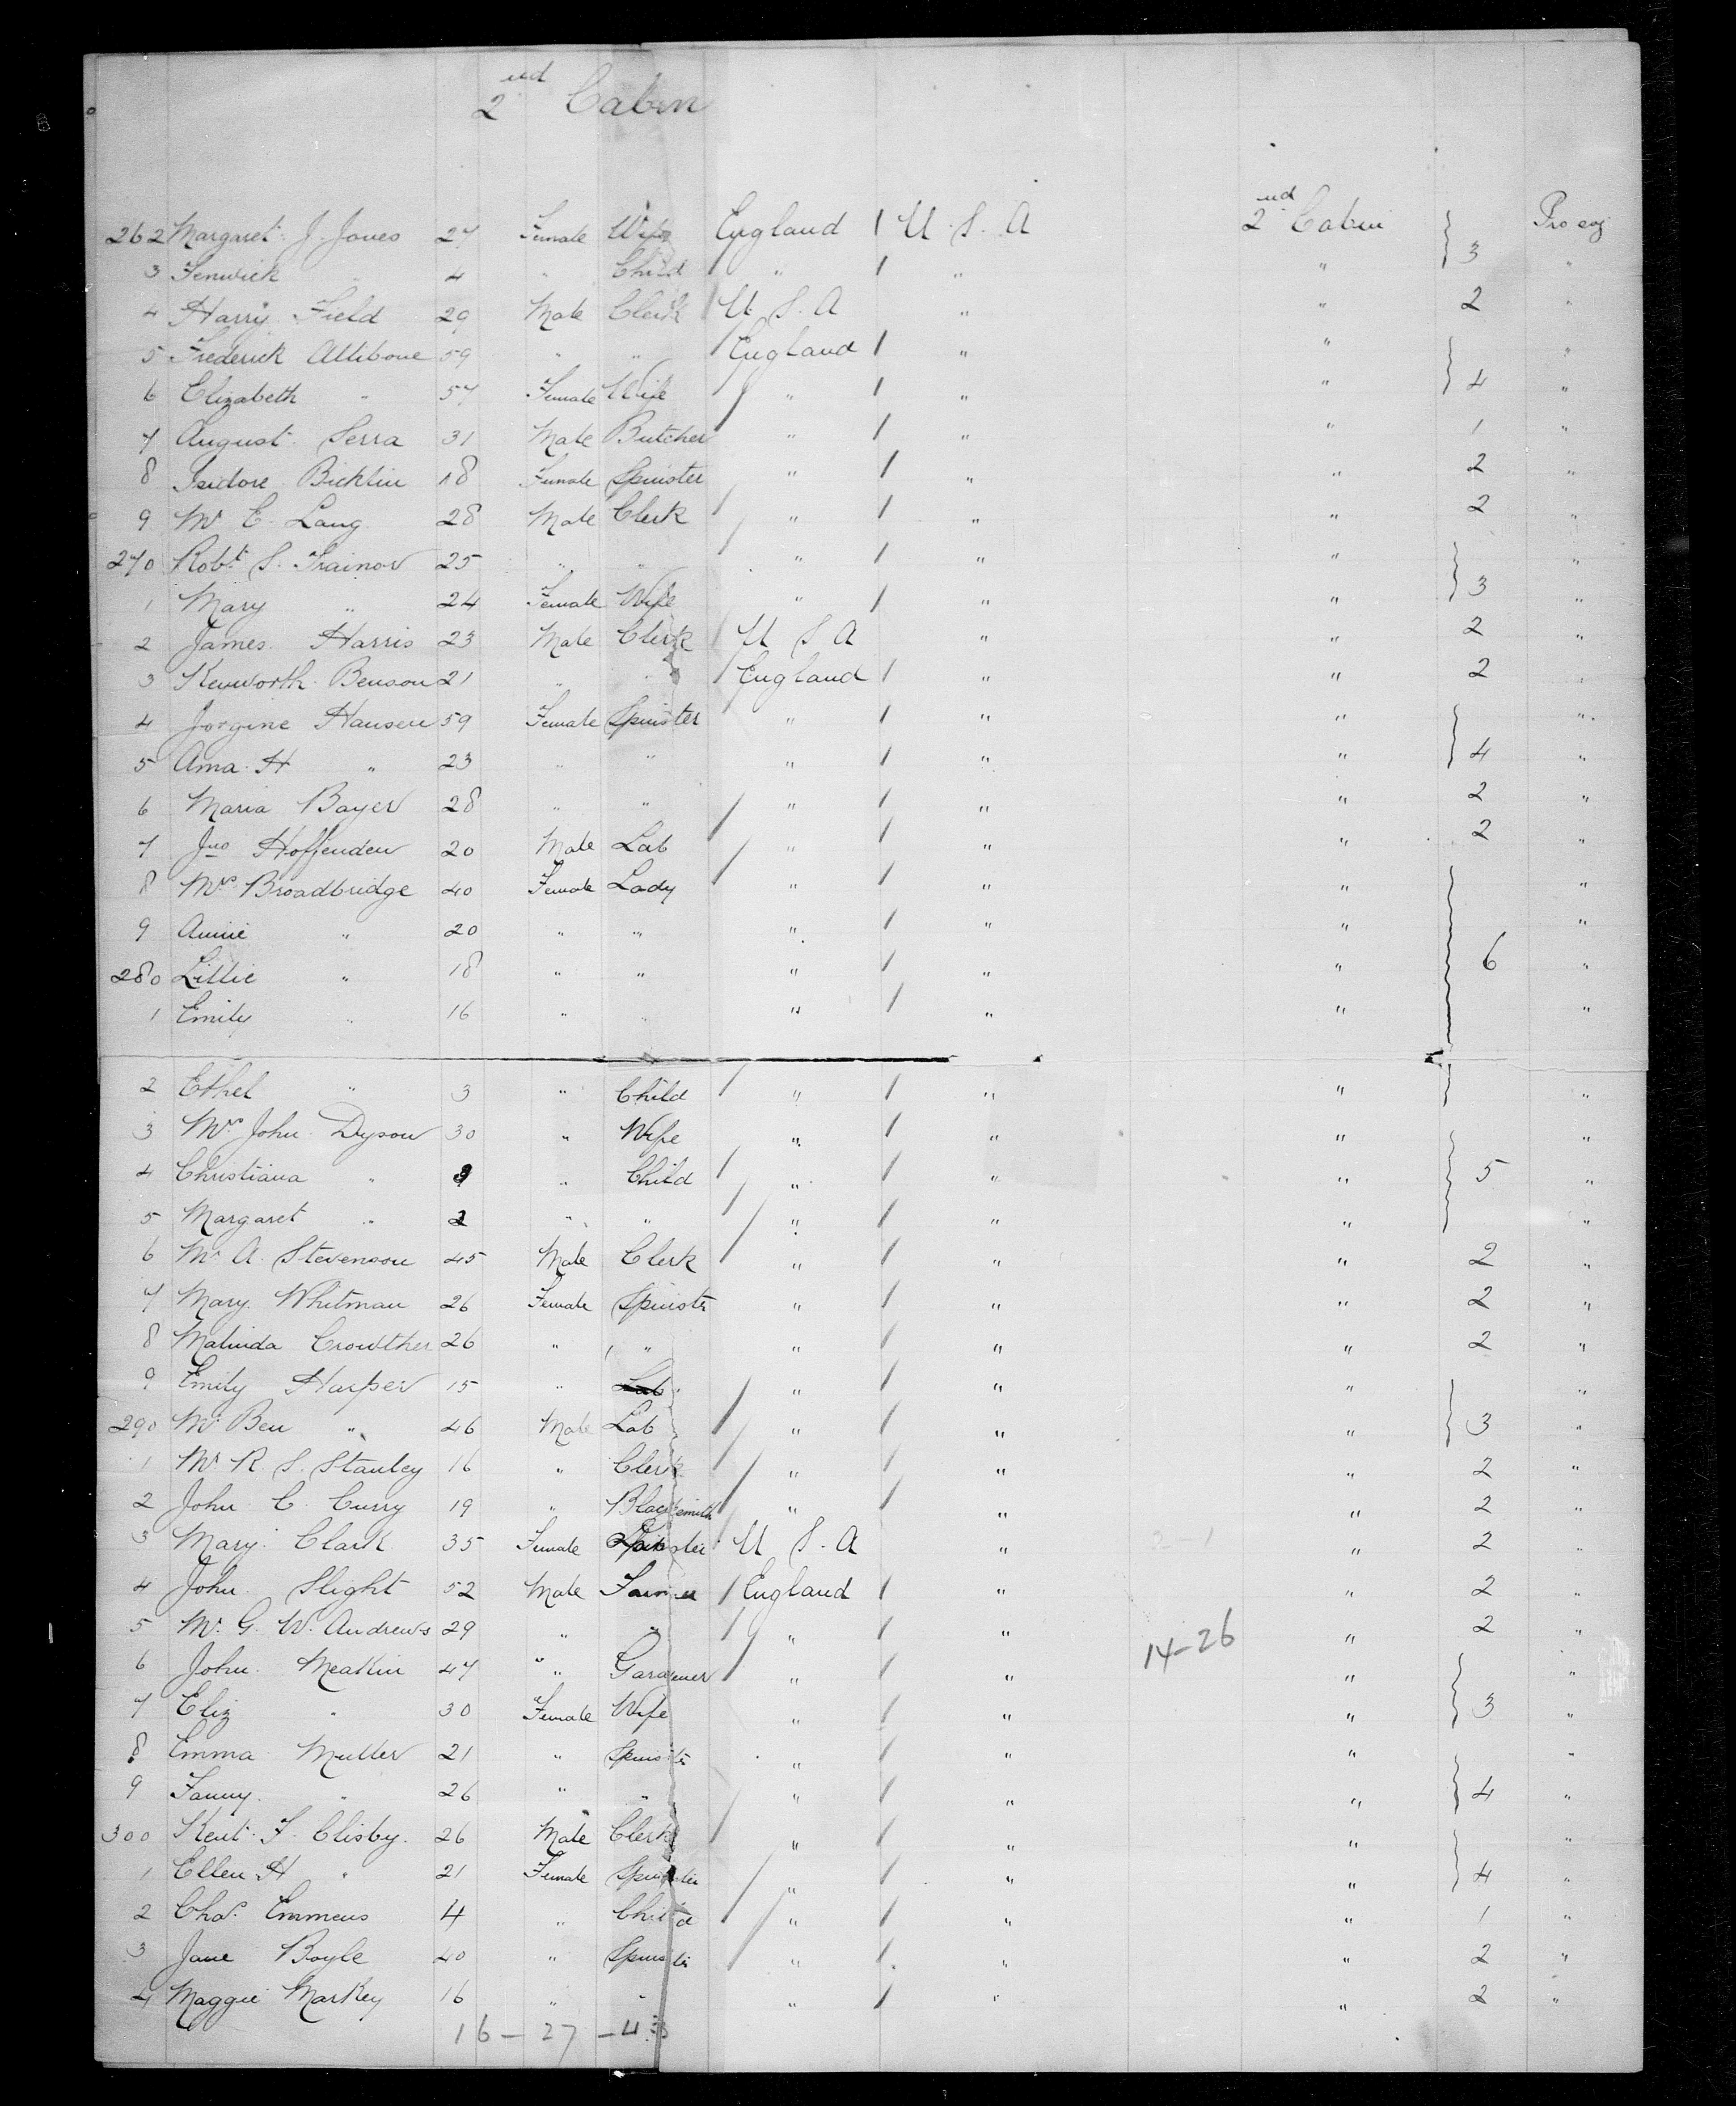 2nd Cabin
262 Margaret J. Jones 27 Female Wife England / U.S.A 2nd Cabin Pro eoj
3 Fenwick " 4 " Child / " / " " } 3 "
4 Harry Field 29 Male Clerk / U.S.A " " 2 "
5 Frederick Allibone 59 " " / England / " " "
6 Elizabeth " 57 Female Wife / " / " " } 4 "
7 August Serra 31 Male Butcher " / " " 1 "
8 Isidore Bicklin 18 Female Spinster " / " " 2 "
9 Mr C. Lang 28 Male Clerk / " / " " 2 "
270 Robt S. Trainor 25 " " / " / " " "
1 Mary " 24 Female Wife " / " " } 3 "
2 James Harris 23 Male Clerk / U S A " " 2 "
3 Kenworth Benson 21 " " England / " " 2 "
4 Jorgine Hansen 59 Female Spinster " / " " "
5 Ama H " 23 " " " / " " } 4 "
6 Maria Bayer 28 " " / " / " " 2 "
7 Jno Hoffenden 20 Male Lab / " / " " 2 "
8 Mrs Broadbridge 40 Female Lady / " / " " "
9 Annie " 20 " " " / " " "
280 Lillie " 18 " " " / " " } 6 "
1 Emily " 16 " " " / " " "
2 Ethel " 3 " Child / " / " " "
3 Mrs John Dyson 30 " Wife " / " " "
4 Christiana " 9 " Child / " / " " } 5 "
5 Margaret " 2 " " / " / " " "
6 Mr A. Stevenson 45 Male Clerk / " / " " 2 "
7 Mary Whitman 26 Female Spinstr " / " " 2 "
8 Malinda Crowther 26 " " " / " " 2 "
9 Emily Harper 15 " Lab " / " " "
290 Mr Ben " 46 Male Lab / " / " " } 3 "
1 Mr R. S. Stanley 16 " Clerk / " / " " 2 "
2 John C. Curry 19 " Blacksmith / " / " " 2 "
3 Mary Clark 35 Female Spinster U S. A " " 2 "
4 John Slight 52 Male Farmer / England / " " 2 "
5 Mr G. W. Andrews 29 " " / " / " 14-26 " 2 "
6 John Meakin 47 " Gardener / " / " " "
7 Eliz " 30 Female Wife " / " " } 3 "
8 Emma Muller 21 " Spinster " / " " "
9 Fanny " 26 " " " / " " } 4 "
300 Kent F. Clisby 26 Male Clerk / " / " " "
1 Ellen H " 21 Female Spinster / " / " " } 4 "
2 Chas. Emmens 4 " Child / " / " " 1 "
3 Jane Boyle 40 " Spinster / " / " " 2 "
4 Maggie Markey 16 " " " / " " 2 "
16-27-43